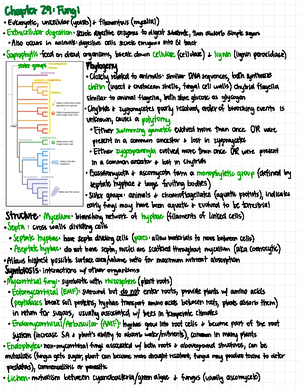 Chapter 29: Fungi
• Eukaryotic, unicellular (yeasts) + filamentous (mycelia)
• Extracellular digestion - secrete digestive enzymes to digest substrate, then absorb simple sugars
• Also occurs in animals - digestive cells secrete enzymes into GI tract
• Saprophytic - feed on dead organisms, break down cellulose (cellulase) + lignin (lignin peroxidase)
Phylogeny
• Closely related to animals - similar DNA sequences, both synthesize
chitin (insect + crustacean shells, fungal cell walls) chytrid flagella
similar to animal flagella, both store glucose as glycogen
• Chytrids + zygomycetes poorly resolved, order of branching events is
unknown, causes a polytomy
• Either swimming gametes evolved more than once OR were
present in a common ancestor + lost in zygomycetes
• Either zygosporangia evolved more than once OR were present
in a common ancestor + lost in chytrids
• Basidiomycota + ascomycota form a monophyletic group (defined by
septate hyphae + large fruiting bodies)
• Sister groups: animals + choanoflagellates (aquatic protists), indicates
early fungi may have been aquatic + evolved to be terrestrial
Structure - Mycelium: branching network of hyphae (filaments of linked cells)
• Septa: cross walls dividing cells
• Septate hyphae: have septa dividing cells (pores allow materials to move between cells)
• Aseptate hyphae: do not have septa, nuclei are scattered throughout mycelium (aka coenocytic)
• Allows highest possible surface area/volume ratio for maximum nutrient absorption
Symbiosis - interactions w/ other organisms
• Mycorrhizal fungi - symbiotic with rhizosphere (plant roots)
• Ectomycorrhizal (EMF): surround but do not enter roots, provide plants w/ amino acids
(peptidases break soil proteins, hyphae transport amino acids between roots, plants absorb them)
in return for sugars, usually associated w/ trees in temperate climates
• Endomycorrhizal/Arbuscular (AMF): hyphae grow into root cells + become part of the root
system (increase SA + plant's ability to absorb water/nutrients), common in many plants
• Endophytes - non-mycorrhizal fungi associated w/ both roots + aboveground structures, can be
mutualists (fungi gets sugar, plant can become more drought resistant, fungi may produce toxins to deter
predators), commensalists or parasitic
• Lichen - mutualism between cyanobacteria/green algae + fungus (usually ascomycete)